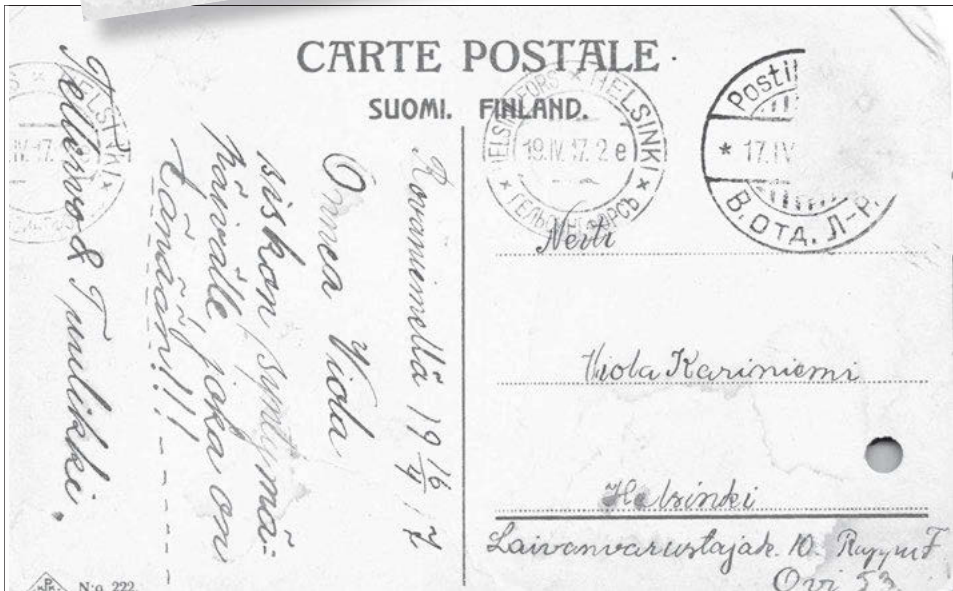 CARTE POSTALE
SUOMI. FINLAND.
HELSINGFORS * HELSINKI *
19.IV.17. 2 e
ГЕЛЬСИНГФОРСЪ
HELSINKI *
.IV.17.
Posti
* 17.IV
В. ОТД. Л-Р.
Rovaniemellä 19 16/4 17
Oma Viola
siskon syntymä-
päivälle joka on
tänään!!!
Tellervo & Tuulikki.
Neiti
Viola Kariniemi
Helsinki
Laivanvarustajak. 10. Rappu F
Ovi 53.
N:o 222.